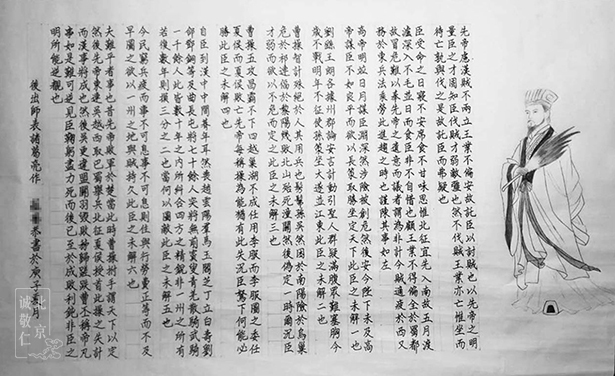 先帝慮漢賊不兩立王業不偏安故託臣以討賊也以先帝之明
量臣之才固知臣伐賊才弱敵彊也然不伐賊王業亦亡惟坐而
待亡孰與伐之是故託臣而弗疑也
臣受命之日寢不安席食不甘味思惟北征宜先入南故五月渡
瀘深入不毛並日而食臣非不自惜也顧王業不得偏全於蜀都
故冒危難以奉先帝之遺意而議者謂為非計今賊適疲於西又
務於東兵法乘勞此進趨之時也謹陳其事如左
高帝明並日月謀臣淵深然涉險被創危然後安今陛下未及高
帝謀臣不如良平而欲以長策取勝坐定天下此臣之未解一也
劉繇王朗各據州郡論安言計動引聖人群疑滿腹眾難塞胸今
歲不戰明年不征使孫策坐大遂並江東此臣之未解二也
曹操智計殊絕於人其用兵也髣髴孫吳然困於南陽險於烏巢
危於祁連偪於黎陽幾敗北山殆死潼關然後偽定一時爾況臣
才弱而欲以不危而定之此臣之未解三也
曹操五攻昌霸不下四越巢湖不成任用李服而李服圖之委任
夏侯而夏侯敗亡先帝每稱操為能猶有此失況臣駑下何能必
勝此臣之未解四也
自臣到漢中中間朞年耳然喪趙雲陽羣馬玉閻芝丁立白壽劉
郃鄧銅等及曲長屯將七十餘人突將無前賨叟青羌散騎武騎
一千餘人此皆數十年之內所糾合四方之精銳非一州之所有
若復數年則損三分之二也當何以圖敵此臣之未解五也
今民窮兵疲而事不可息事不可息則住與行勞費正等而不及
早圖之欲以一州之地與賊持久此臣之未解六也
夫難平者事也昔先帝敗軍於楚當此時曹操拊手謂天下以定
然後先帝東連吳越西取巴蜀舉兵北征夏侯授首此操之失計
而漢事將成也然後吳更違盟關羽毀敗秭歸蹉跌曹丕稱帝凡
事如是難可逆見臣鞠躬盡力死而後已至於成敗利鈍非臣之
明所能逆覩也
後出師表諸葛亮作 恭書於庚子荔月
北京
诚敬仁